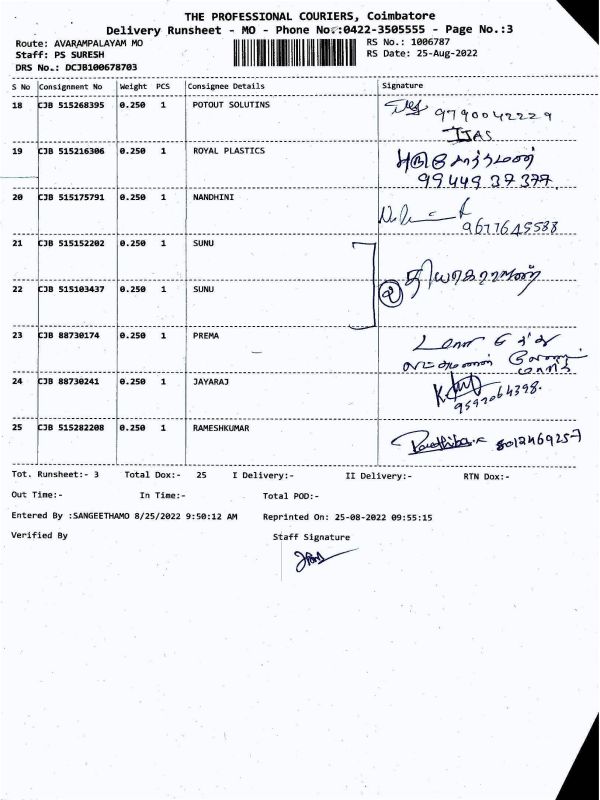 THE PROFESSIONAL COURIERS, Coimbatore
Delivery Runsheet - MO - Phone No.:0422-3505555 - Page No.:3
Route: AVARAMPALAYAM MO RS No.: 1006787
Staff: PS SURESH RS Date: 25-Aug-2022
DRS No.: DCJB100678703
S No Consignment No Weight PCS Consignee Details Signature
18 CJB 515268395 0.250 1 POTOUT SOLUTINS 9790042229
IJAS
19 CJB 515216306 0.250 1 ROYAL PLASTICS
99449 37377
20 CJB 515175791 0.250 1 NANDHINI
9677645588
21 CJB 515152202 0.250 1 SUNU
22 CJB 515103437 0.250 1 SUNU
23 CJB 88730174 0.250 1 PREMA
24 CJB 88730241 0.250 1 JAYARAJ
9597064398.
25 CJB 515282208 0.250 1 RAMESHKUMAR 8012469257
Tot. Runsheet:- 3 Total Dox:- 25 I Delivery:- II Delivery:- RTN Dox:-
Out Time:- In Time:- Total POD:-
Entered By :SANGEETHAMO 8/25/2022 9:50:12 AM Reprinted On: 25-08-2022 09:55:15
Verified By Staff Signature